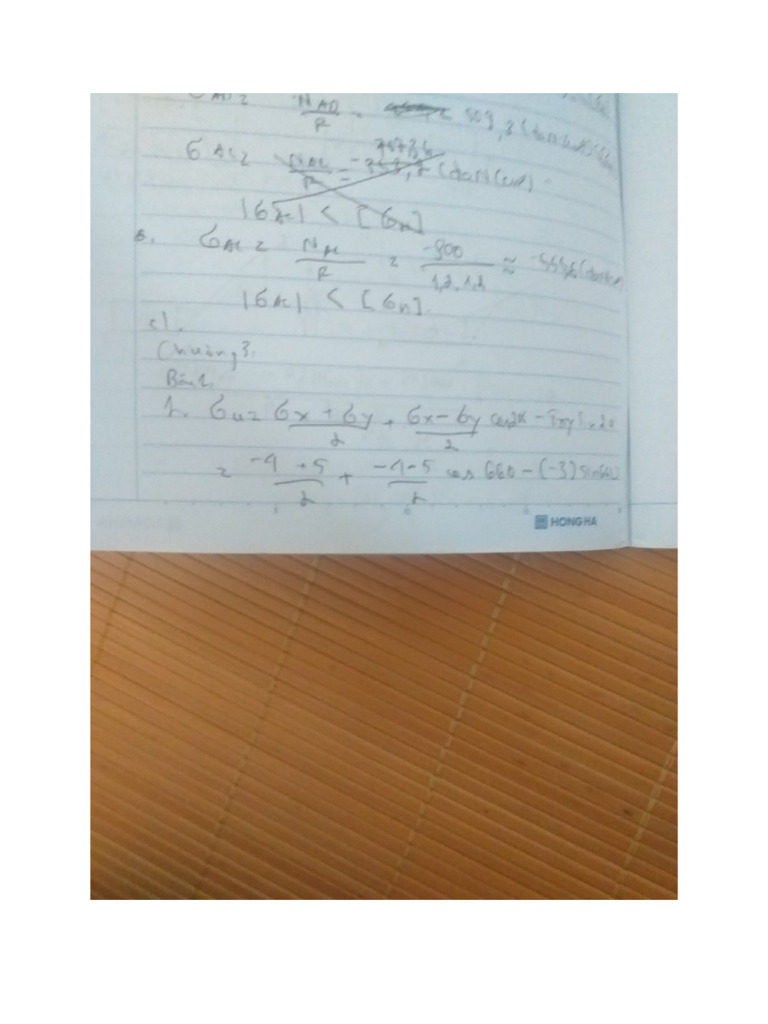 σAD = NAD/F = 509,3 (daN/cm²)
σAC = NAC/F =
|σAC| < [σn]
σAC = NAC/F = -800/1,2.1,2 ≈ (daN/cm²)
|σAC| < [σn]
c).
Chương 3.
Bài 1.
1. σu = σx + σy/2 + σx - σy/2 cos2α - τxy sin2α
= -4 + 5/2 + -4 - 5/2 cos 660 - (-3) sin660
HONG HA